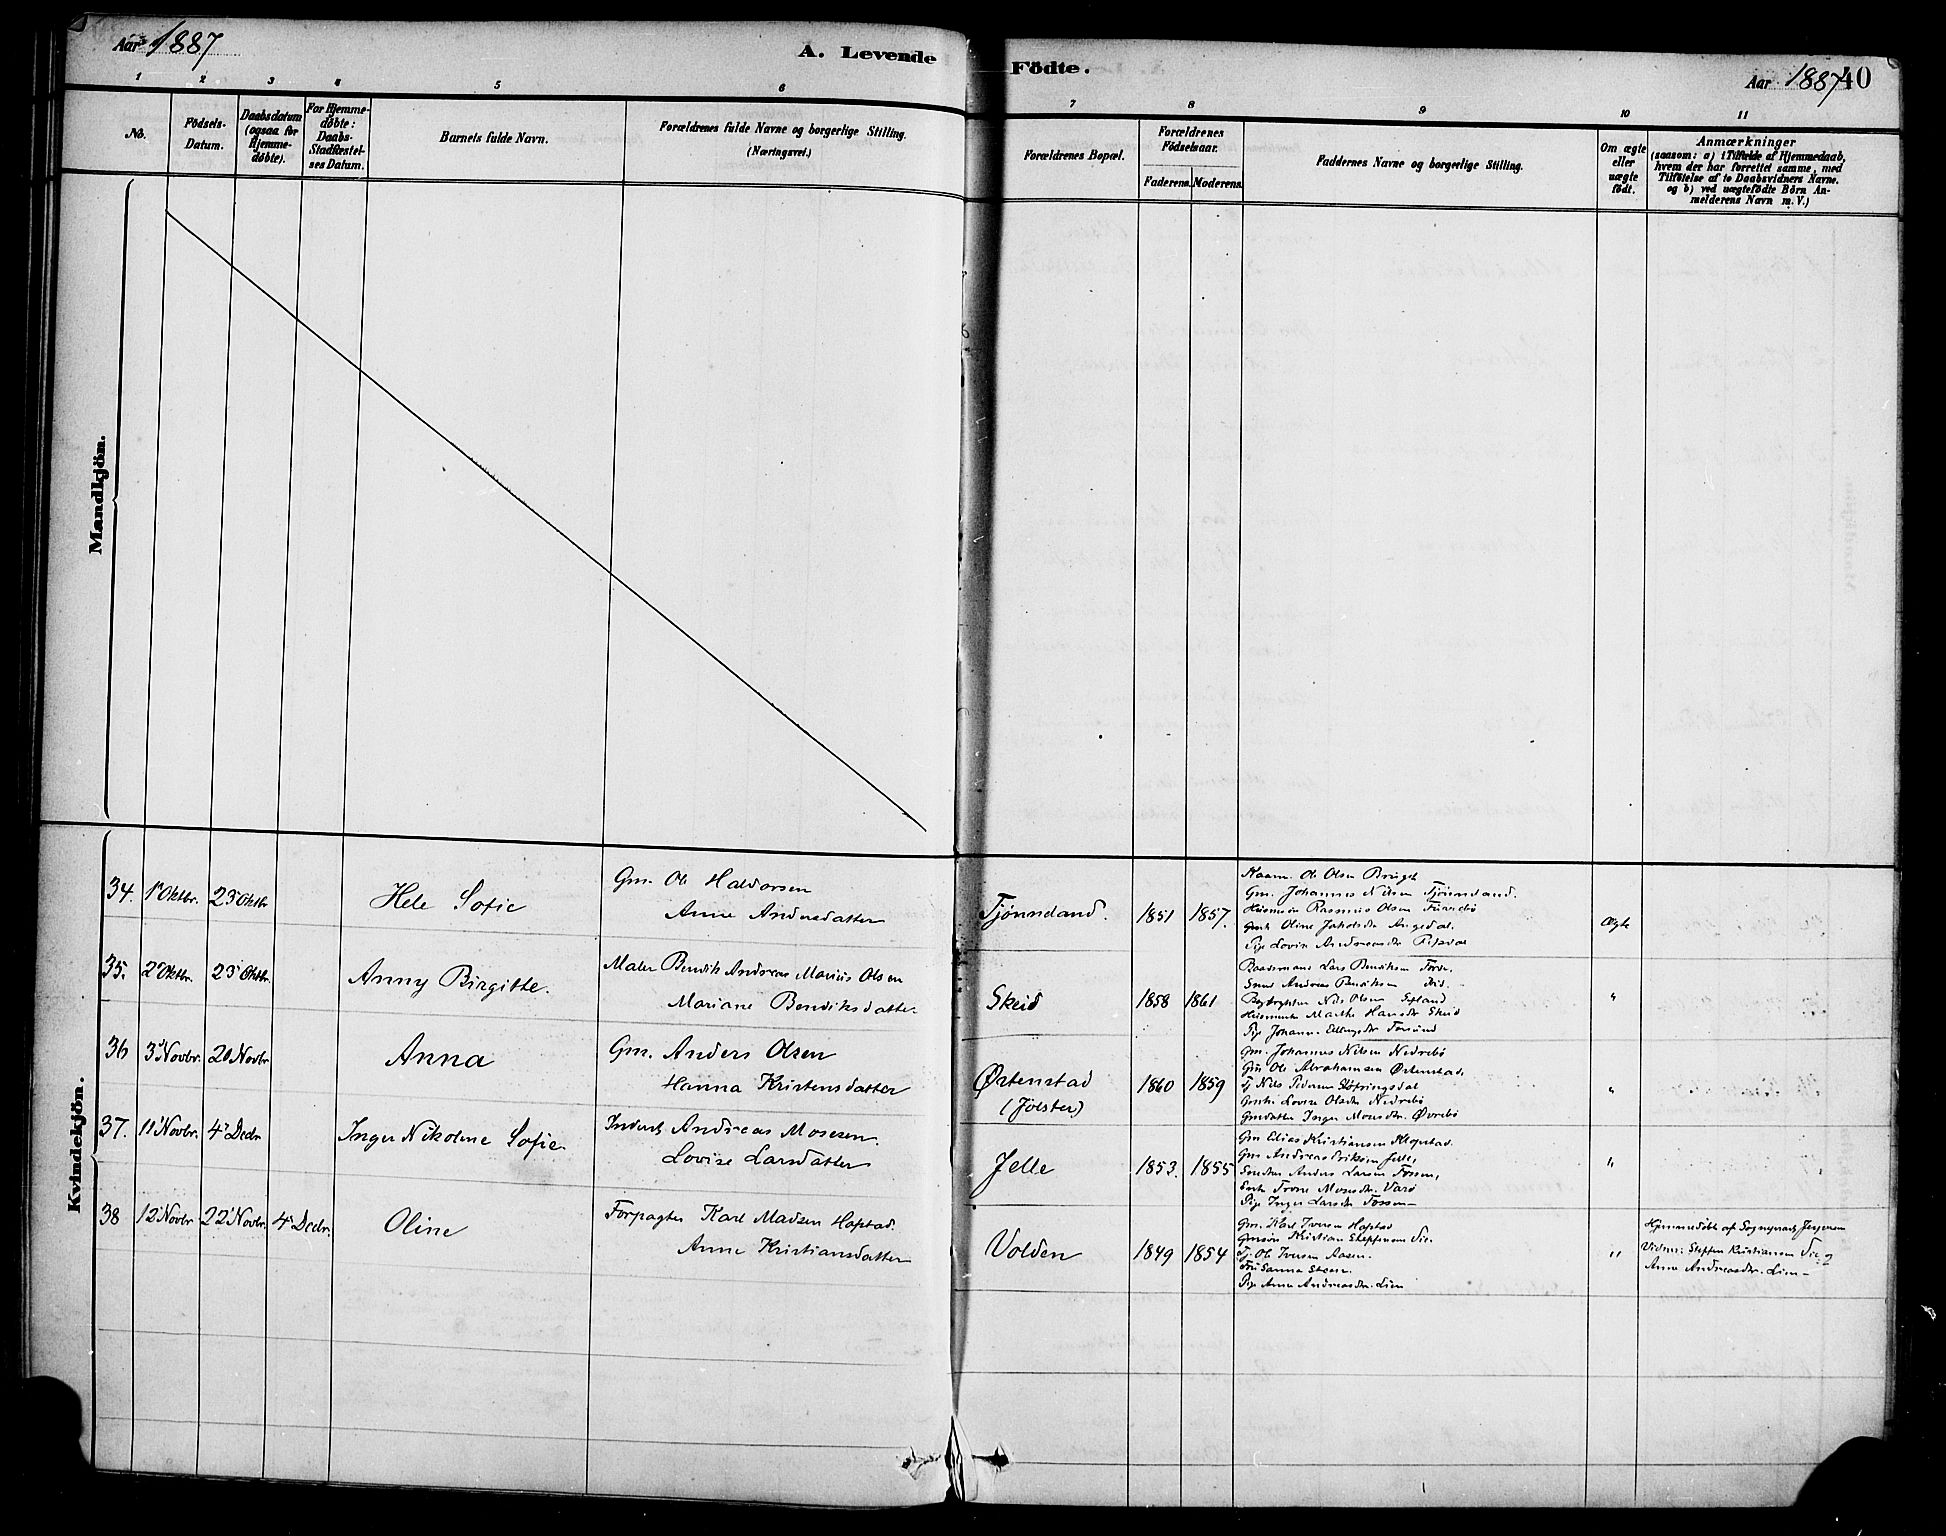 Aar 1887
A. Levende
Födte.
Aar 1887
40
1 2 3 4 5 6
7 8 9 10 11
No.
Födsels-
Datum.
Daabsdatum
(ogsaa for
Hjemme-
döbte).
For Hjemme-
döbte:
Daabs-
Stadfæstel-
ses Datum.
Barnets fulde Navn.
Forældrenes fulde Navne og borgerlige Stilling.
(Næringsvei.)
Forældrenes Bopæl.
Forældrenes
Födselsaar.
Faderens. Moderens.
Faddernes Navne og borgerlige Stilling.
Om ægte
eller
uægte
födt.
Anmærkninger
(saasom: a) i Tilfælde af Hjemmedaab,
hvem der har forrettet samme, med
Tilföielse af to Daabsvidners Navne.
og b) ved uægtefödte Börn An-
melderens Navn m. V.)
Mandkjön.
Kvindekjön.
34. 1 Oktbr. 23 Oktbr
Hele Sofie
Gm. Ole Haldorsen
Anne Andersdatter
Tjønndand. 1851 1857.
Gm. Johannes Nilsen
Rasmus Olsen
Oline Angedal.
Pige Lovise Andreasdtr
Ægte
35. 2 Oktbr. 23 Oktbr.
Anny Birgitte.
Maler Bendik Andreas Marius Olsen
Mariane Bendiksdatter.
Skeid 1858 1861
Lars Bendiksen Førde.
Andreas Bendiksen
Nils Olsen
Marthe Hansdtr Skeid
Pige Johanne
"
36 3 Novbr. 20 Novbr.
Anna
Gm. Anders Olsen
Hanna Kristensdatter
Østenstad
(Jölster)
1860 1859
Gm. Johannes Nilsen Nedrebö
Gm Ole Abrahamsen Østenstad.
Tj Nils Pedersen
Lovise Olsdtr Nedrebö
Gmdatter Inger Monsdtr. Øvrebö
"
37. 11 Novbr. 4 Decbr
Inger Nikoline Sofie
Inderst Andreas Mosesen.
Lovise Larsdatter
Jelle 1853. 1855
Gm Elias Kristiansen Klopstad.
Gm Andreas Eriksen Jelle,
Anders Larsen Fossen,
Monsdtr.
Pige Inger Larsdtr Fossen
"
38 12 Novbr 22 Novbr. 4 Decbr.
Oline
Forpagter Karl Madsen Hopstad.
Anne Kristiansdatter
Volden 1849 1854
Gm. Karl Iversen Hopstad
Gmsön Kristian Steffensen Vie.
Tj. Ole Iversen Aasen.
Fru Sanna Steen.
Pige Anna Andreasdtr. Lien
"
Hjemmedöbt af Sognepræst Jergensen
Vidner: Steffen Kristiansen Vie &
Anna Andreasdtr. Lien